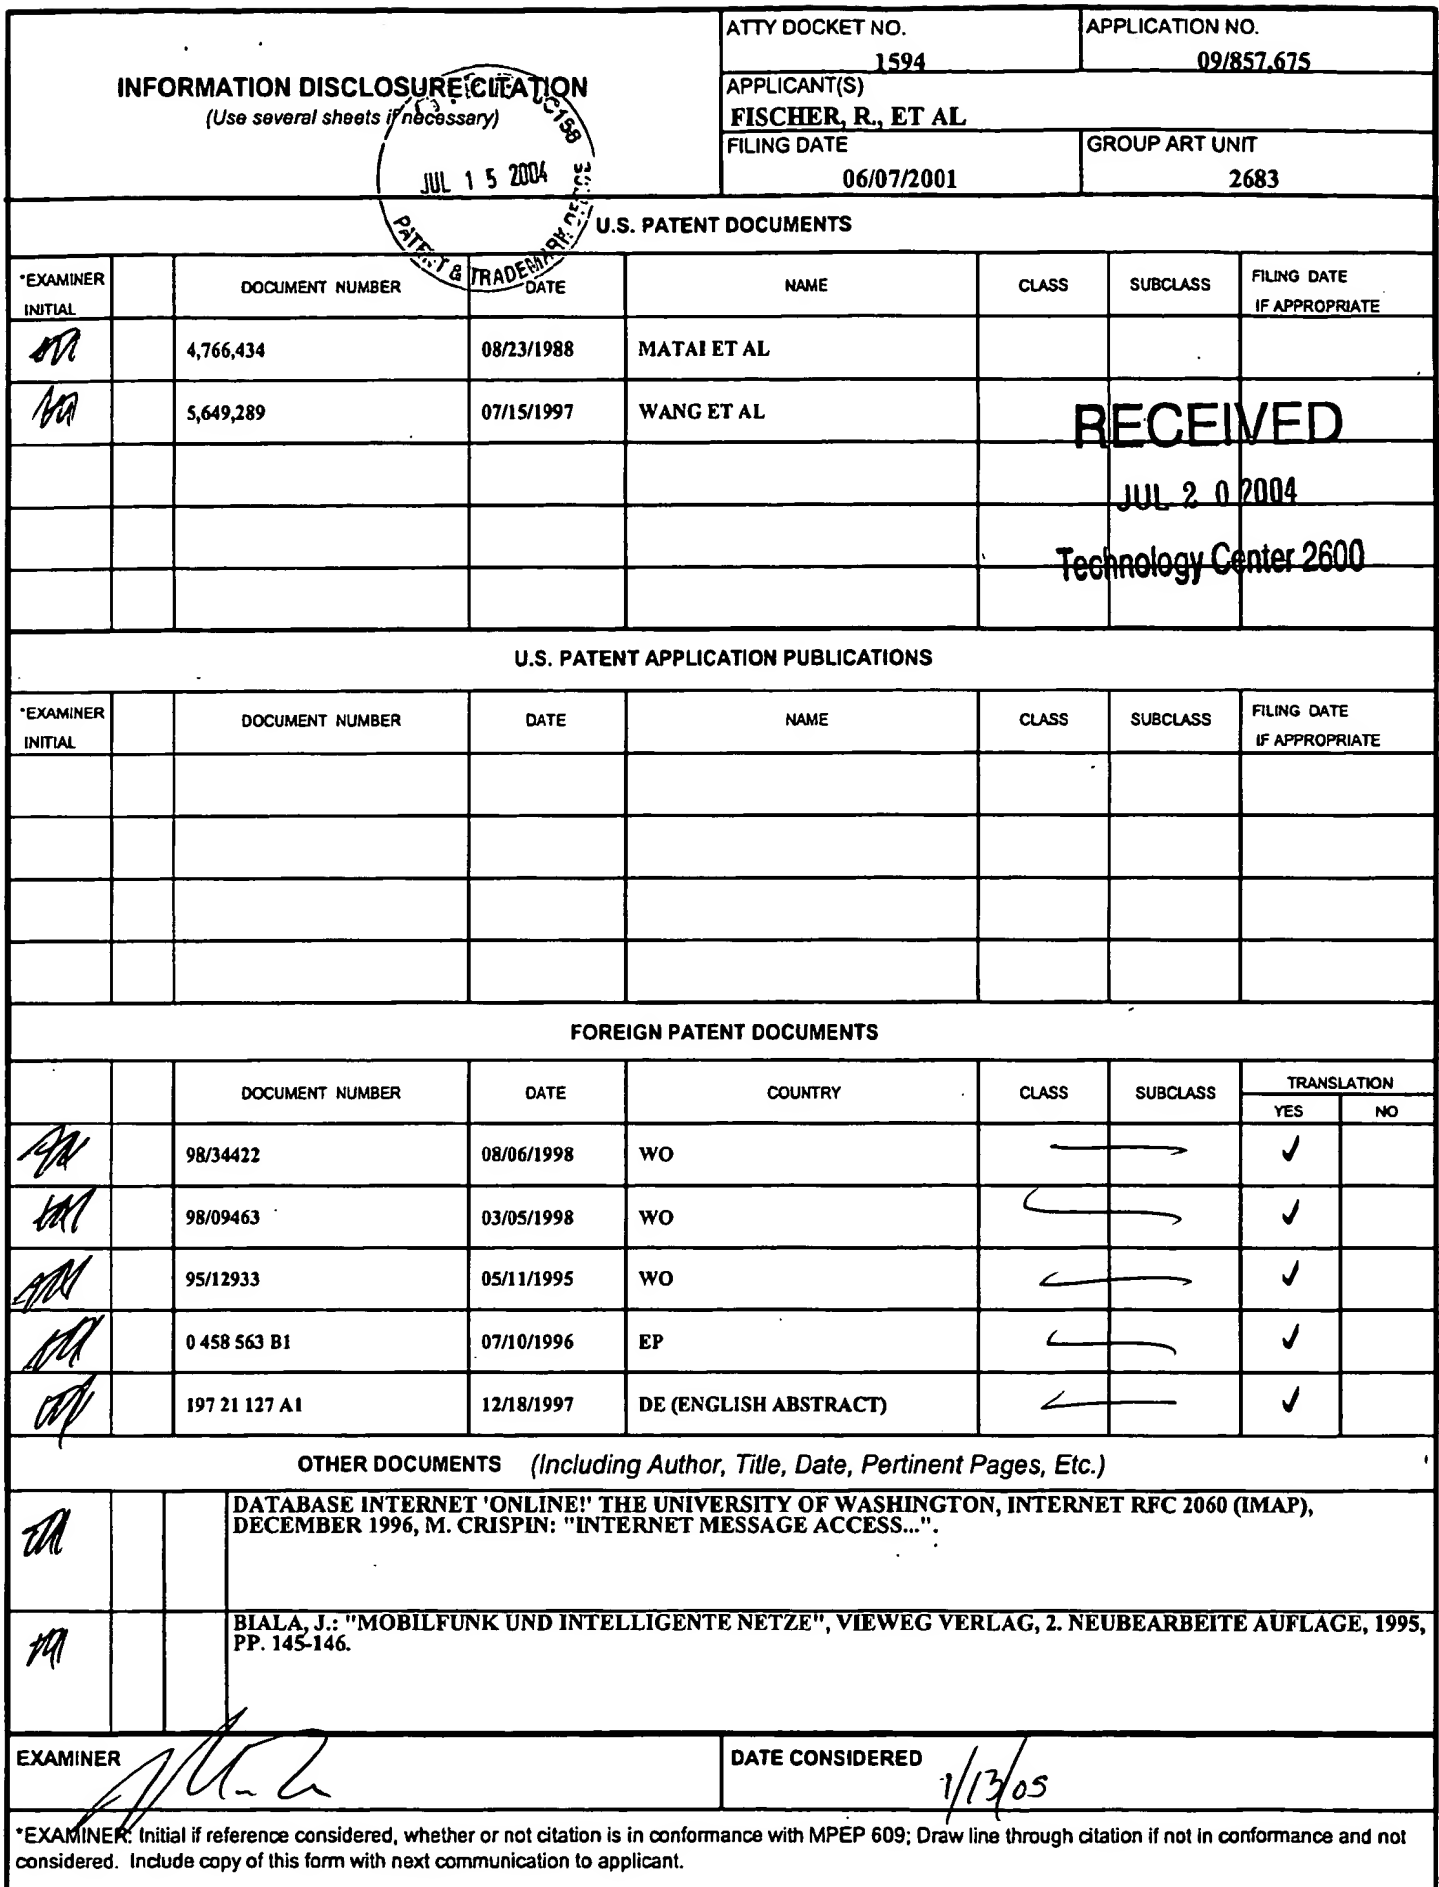 ATTY DOCKET NO.
1594
APPLICATION NO.
09/857,675
INFORMATION DISCLOSURE CITATION
(Use several sheets if necessary)
APPLICANT(S)
FISCHER, R., ET AL
FILING DATE
06/07/2001
GROUP ART UNIT
2683
JUL 15 2004
PATENT & TRADEMARK OFFICE
U.S. PATENT DOCUMENTS
*EXAMINER INITIAL DOCUMENT NUMBER DATE NAME CLASS SUBCLASS FILING DATE IF APPROPRIATE
4,766,434 08/23/1988 MATAI ET AL
5,649,289 07/15/1997 WANG ET AL
RECEIVED
JUL 20 2004
Technology Center 2600
U.S. PATENT APPLICATION PUBLICATIONS
*EXAMINER INITIAL DOCUMENT NUMBER DATE NAME CLASS SUBCLASS FILING DATE IF APPROPRIATE
FOREIGN PATENT DOCUMENTS
DOCUMENT NUMBER DATE COUNTRY CLASS SUBCLASS TRANSLATION
YES NO
98/34422 08/06/1998 WO ✓
98/09463 03/05/1998 WO ✓
95/12933 05/11/1995 WO ✓
0 458 563 B1 07/10/1996 EP ✓
197 21 127 A1 12/18/1997 DE (ENGLISH ABSTRACT) ✓
OTHER DOCUMENTS (Including Author, Title, Date, Pertinent Pages, Etc.)
DATABASE INTERNET 'ONLINE!' THE UNIVERSITY OF WASHINGTON, INTERNET RFC 2060 (IMAP),
DECEMBER 1996, M. CRISPIN: "INTERNET MESSAGE ACCESS...".
BIALA, J.: "MOBILFUNK UND INTELLIGENTE NETZE", VIEWEG VERLAG, 2. NEUBEARBEITE AUFLAGE, 1995,
PP. 145-146.
EXAMINER
DATE CONSIDERED
1/13/05
*EXAMINER: Initial if reference considered, whether or not citation is in conformance with MPEP 609; Draw line through citation if not in conformance and not
considered. Include copy of this form with next communication to applicant.